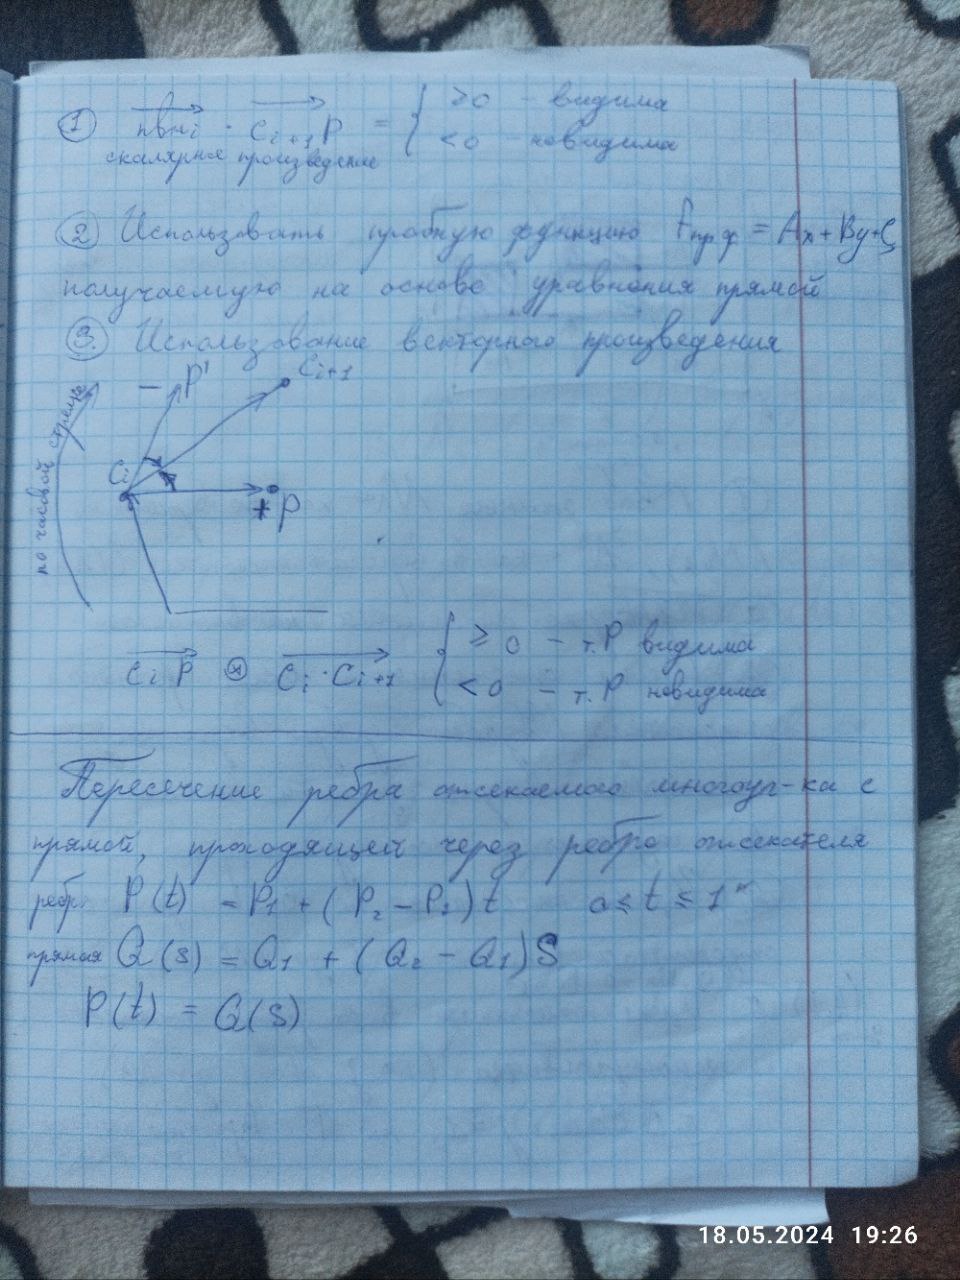 ① nвнi · Ci+1P = { ≥0 - видима
скалярное произведение < 0 невидима
② Использовать пробную функцию Fпр ф = Ax+By+C,
получаемую на основе уравнения прямой
③. Использование векторного произведения
по часовой стрелке
- P' Ci+1
Ci
+ P
CiP ⊗ Ci·Ci+1 { ≥ 0 - т. P видима
< 0 - т. P невидима
Пересечение ребра отсекаемого многоуг-ка с
прямой, проходящей через ребро отсекателя
ребр. P(t) = P1 + (P2 - P1)t 0 ≤ t ≤ 1
прямая Q(s) = Q1 + (Q2 - Q1)S
P(t) = Q(S)
18.05.2024 19:26